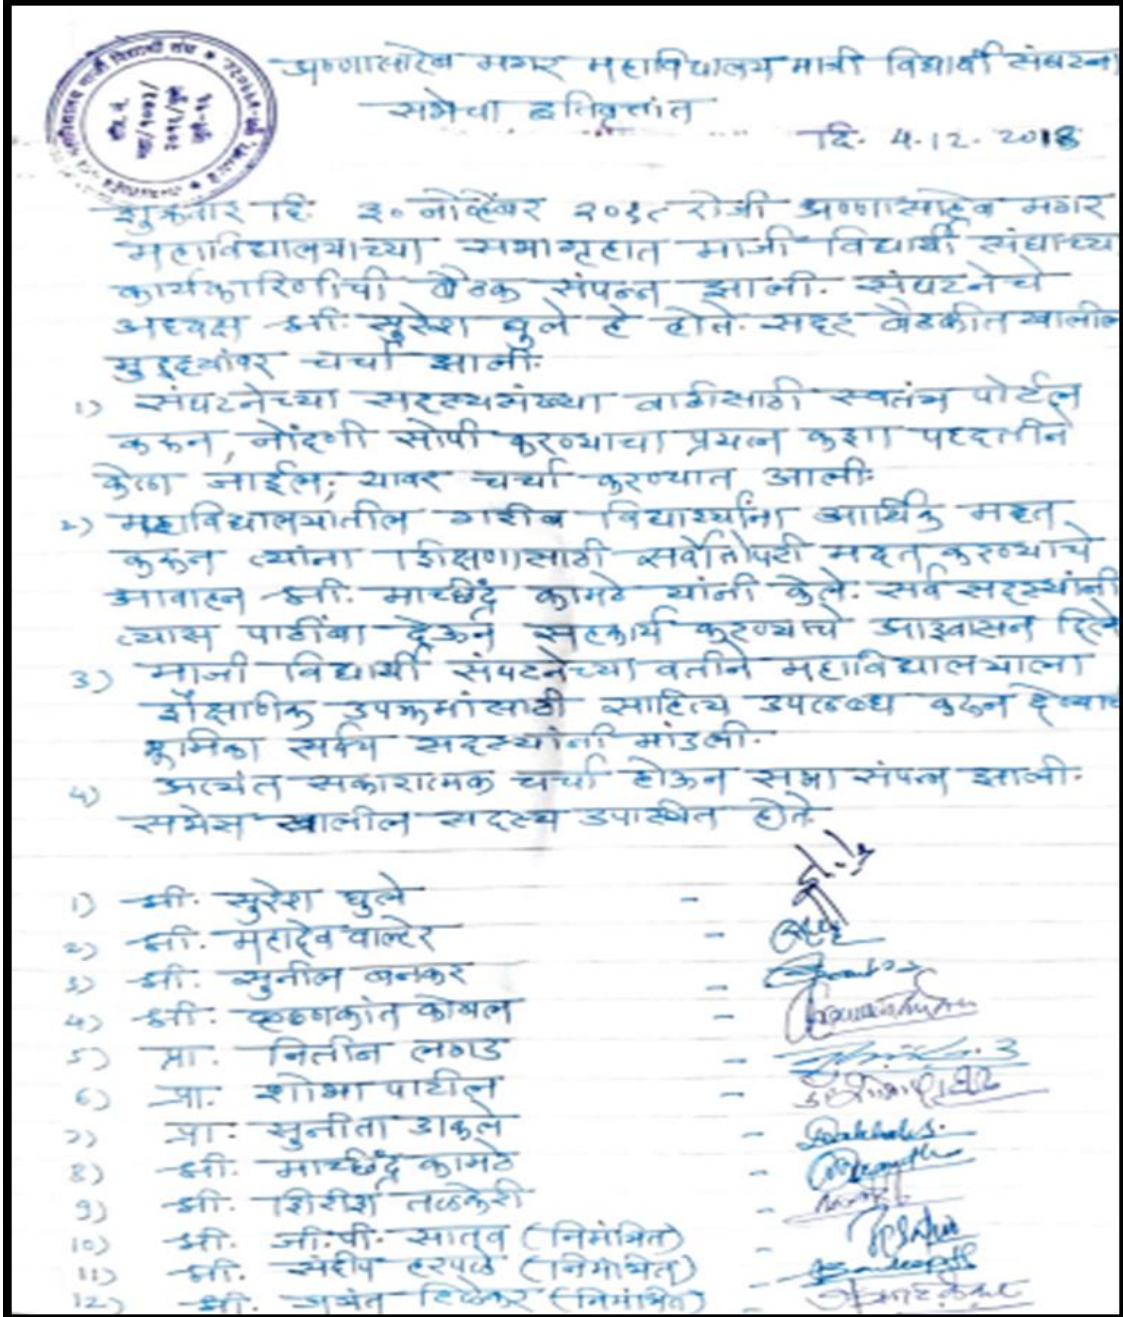 अण्णासाहेब मगर महाविद्यालय माजी विद्यार्थी संघटना
सभेचा इतिवृत्तांत
दि. 4.12.2018
शुक्रवार दि. ३० नोव्हेंबर २०१८ रोजी अण्णासाहेब मगर
महाविद्यालयाच्या सभागृहात माजी विद्यार्थी संघाच्या
कार्यकारिणीची बैठक संपन्न झाली. संघटनेचे
अध्यक्ष श्री. सुरेश घुले हे होते. सदर बैठकीत खालील
मुद्द्यांवर चर्चा झाली.
1) संघटनेच्या सदस्यसंख्या वाढीसाठी स्वतंत्र पोर्टल
करून, नोंदणी सोपी करण्याचा प्रयत्न कशा पध्दतीने
केला जाईल, यावर चर्चा करण्यात आली.
2) महाविद्यालयातील गरीब विद्यार्थ्यांना आर्थिक मदत
करून त्यांना शिक्षणासाठी सर्वतोपरी मदत करण्याचे
आवाहन श्री. माच्छींद्र कामठे यांनी केले. सर्व सदस्यांनी
त्यास पाठींबा देऊन सहकार्य करण्याचे आश्वासन दिले
3) माजी विद्यार्थी संघटनेच्या वतीने महाविद्यालयाला
शैक्षणिक उपक्रमांसाठी साहित्य उपलब्ध करून देण्याच
भूमिका सर्वच सदस्यांनी मांडली.
4) अत्यंत सकारात्मक चर्चा होऊन सभा संपन्न झाली.
सभेस खालील सदस्य उपस्थित होते.
1) श्री. सुरेश घुले -
2) श्री. महादेव वाल्हेर -
3) श्री. सुनील बनकर -
4) श्री. कृष्णकांत कोबल -
5) प्रा. नितीन लगड -
6) प्रा. शोभा पाटील -
7) प्रा. सुनीता डाकले -
8) श्री. माच्छींद्र कामठे -
9) श्री. शिरीष तळकेरी -
10) श्री. जी.पी. सातव (निमंत्रित) -
11) श्री. संदीप हरपळे (निमंत्रित) -
12) श्री. जयंत टिळेकर (निमंत्रित) -